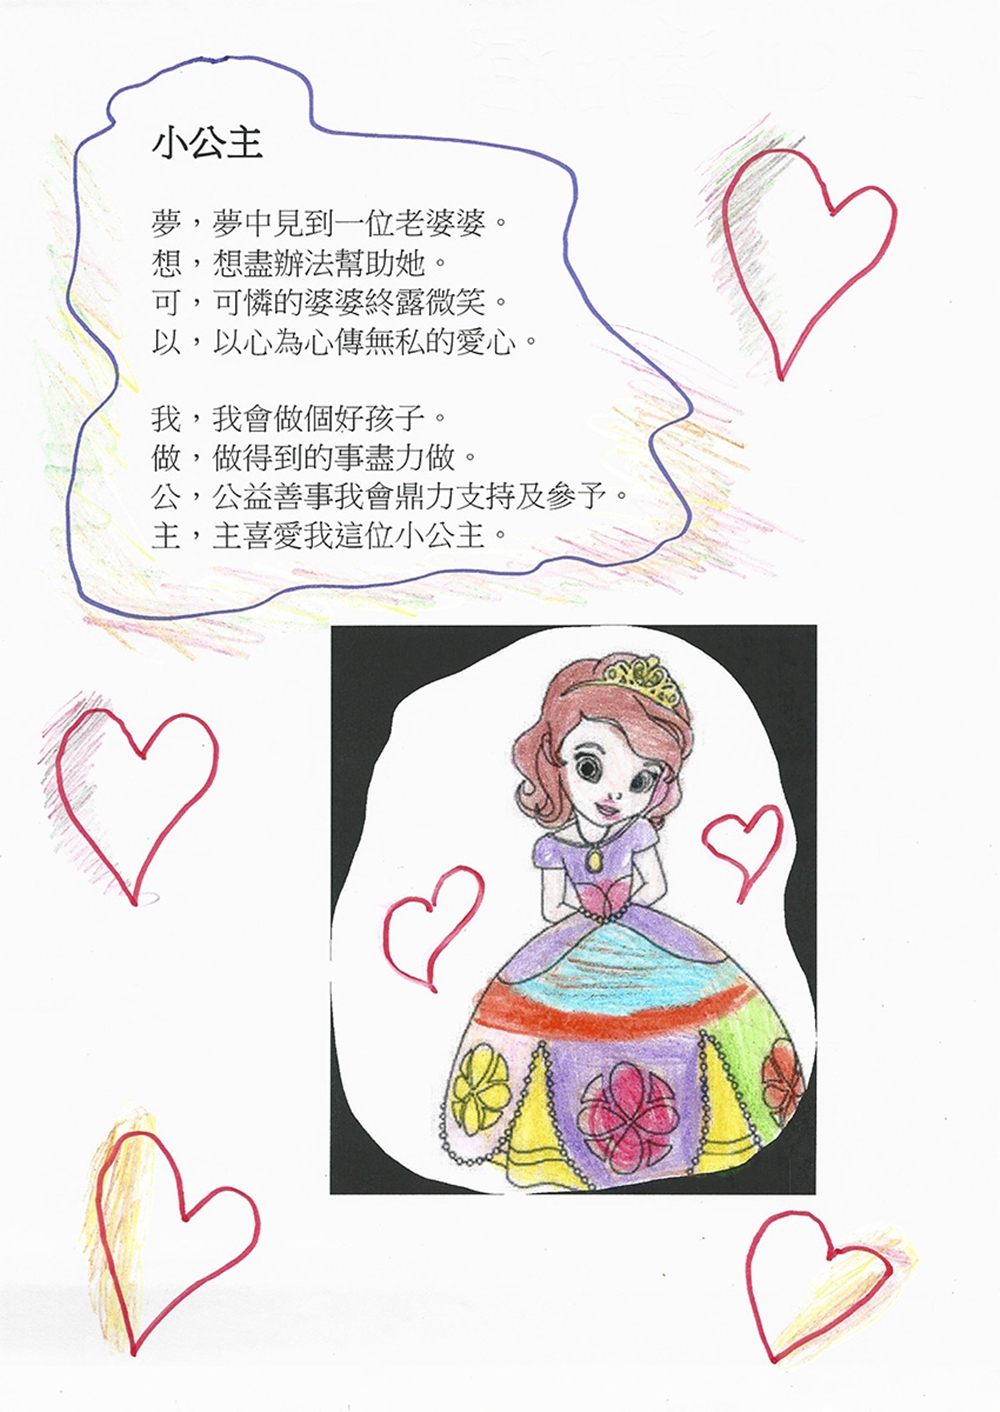 小公主
夢，夢中見到一位老婆婆。
想，想盡辦法幫助她。
可，可憐的婆婆終露微笑。
以，以心為心傳無私的愛心。
我，我會做個好孩子。
做，做得到的事盡力做。
公，公益善事我會鼎力支持及參予。
主，主喜愛我這位小公主。